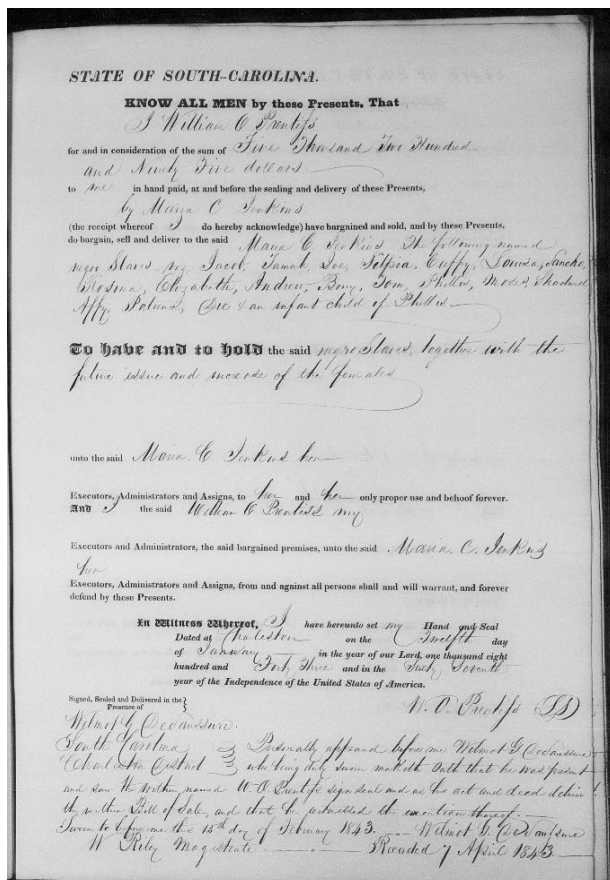 STATE OF SOUTH-CAROLINA.
KNOW ALL MEN by these Presents, That
I William O Prentiss
for and in consideration of the sum of Five Thousand Two Hundred
and Ninety Five dollars
to me in hand paid, at and before the sealing and delivery of these Presents,
by Maria C Jenkins
(the receipt whereof I do hereby acknowledge) have bargained and sold, and by these Presents,
do bargain, sell and deliver to the said Maria C Jenkins The following named
negro Slaves viz, Jacob, Tamah, Cuffy, Louisa, Sancho,
Rosina, Elizabeth, Andrew, Bony, Tom, Phillis, Moses,
Affy, & an infant child of Phillis
To have and to hold the said negro Slaves, together with the
future issue and increase of the females
unto the said Maria C. Jenkins her
Executors, Administrators and Assigns, to her and her only proper use and behoof forever.
And I the said William O Prentiss my
Executors and Administrators, the said bargained premises, unto the said Maria C. Jenkins
her
Executors, Administrators and Assigns, from and against all persons shall and will warrant, and forever
defend by these Presents.
In Witness Whereof, I have hereunto set my Hand and Seal
Dated at Charleston on the Twelfth day
of January in the year of our Lord, one thousand eight
hundred and Forty Three and in the Sixty Seventh
year of the Independence of the United States of America.
Signed, Sealed and Delivered in the
Presence of
W. O. Prentiss (LS)
Wilmot G DeSaussure.
South Carolina
Charleston District
Personally appeared before me Wilmot G DeSaussure
who being duly sworn maketh Oath that he was present
and saw the within named W. O. Prentiss sign seal and as his act and deed deliver
the within Bill of Sale, and that he witnessed the execution thereof.
Sworn to before me this 15th day of February 1843. Wilmot G. DeSaussure
W Riley Magistrate Recorded 7 April 1843